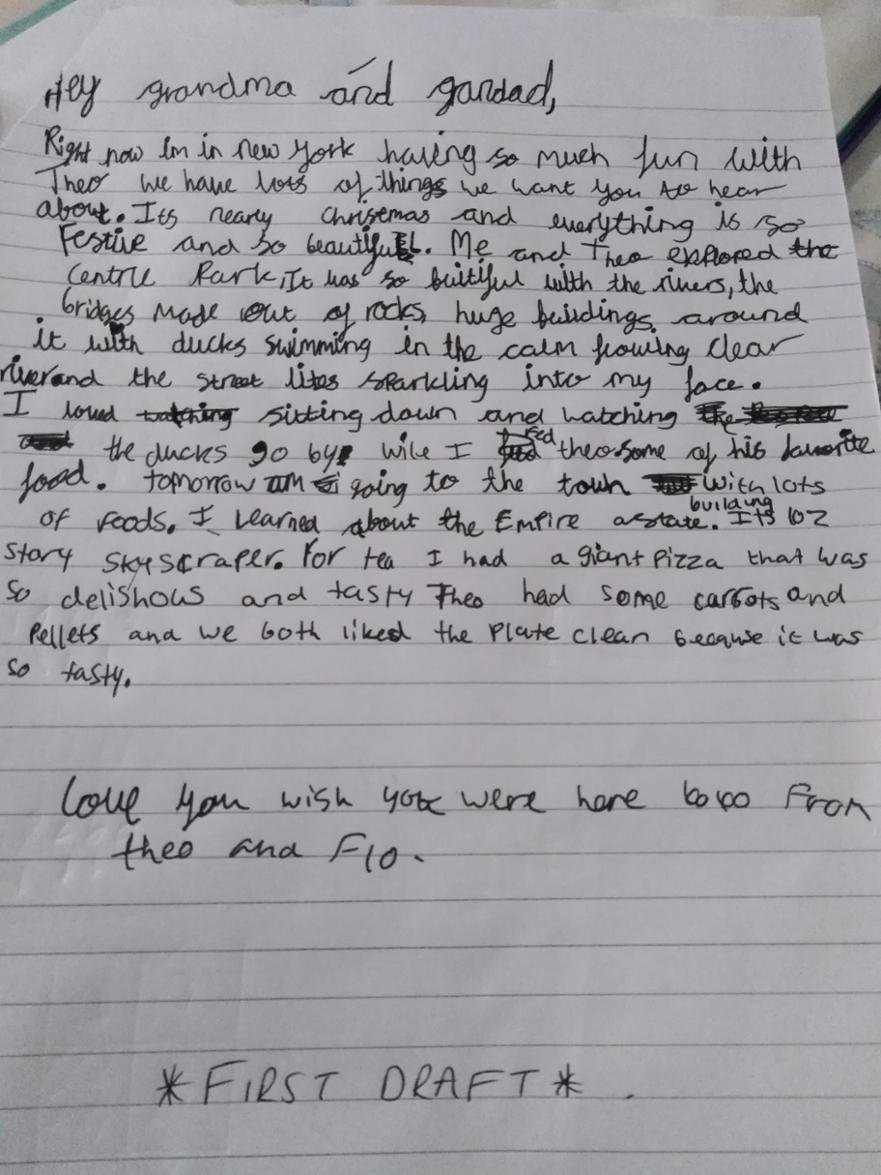 Hey grandma and gandad,
Right now Im in new york having so much fun with
Theo we have lots of things we want you to hear
about. Its nearly christmas and everything is so
Festive and so beautiful. Me and Theo explored the
centre Park, It was so buitiful with the rivers, the
bridges made out of rocks, huge buildings around
it with ducks swimming in the calm flowing clear
river and the street lites sparkling into my face.
I loved watching sitting down and watching the
the ducks go by wile I fed theo some of his favorite
food. tomorrow am going to the town with lots
of foods. I Learned about the Empire astate building. Its 102
story skyscraper. For tea I had a giant Pizza that was
so delishous and tasty Theo had some carrots and
Pellets and we both liked the Plate clean because it was
so tasty.
Love you wish you were here From
theo and Flo.
*FIRST DRAFT*.